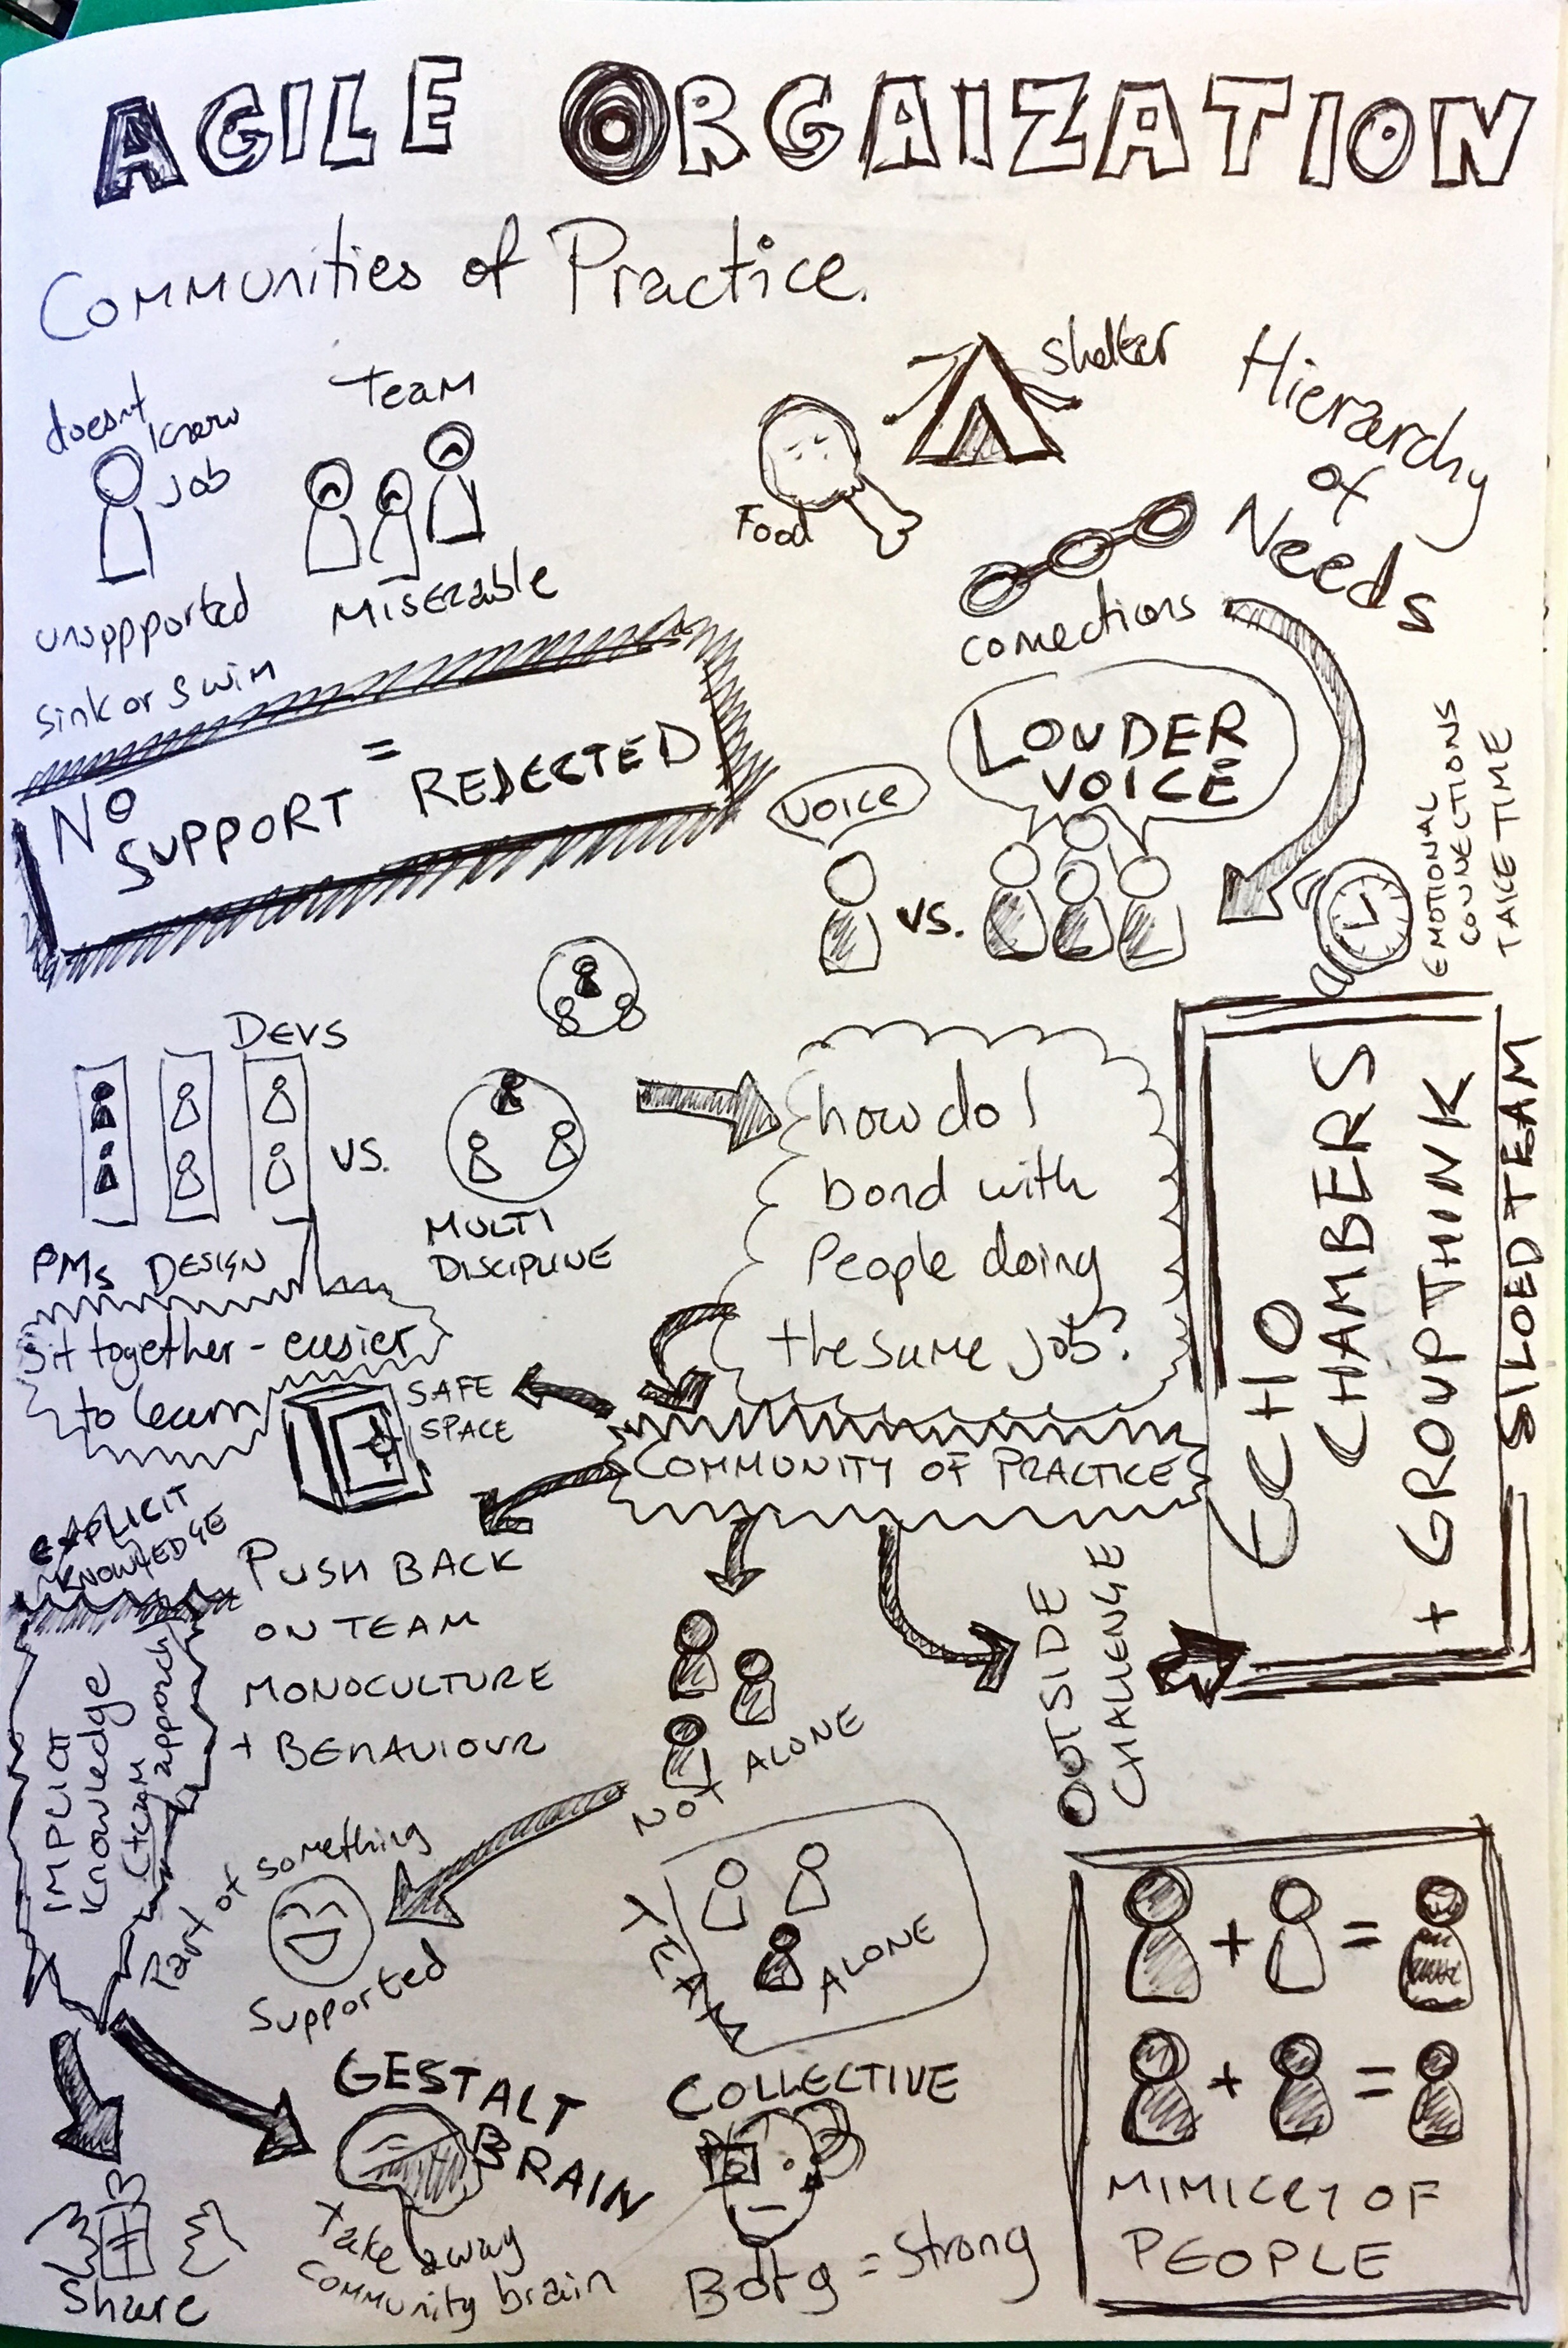 AGILE ORGAIZATION
Communities of Practice.
doesnt
know
job
unsuppported
sink or swim
Team
Miserable
Food
Shelter
Hierarchy
of
Needs
connections
NO
SUPPORT = REJECTED
VOICE
vs.
LOUDER
VOICE
EMOTIONAL
CONNECTIONS
TAKE TIME
DEVS
PMs DESIGN
VS.
MULTI
DISCIPLINE
how do I
bond with
People doing
the same job?
ECHO
CHAMBERS
+ GROUPTHINK
SILOED TEAM
Sit together - easier
to learn
SAFE
SPACE
COMMUNITY OF PRACTICE
EXPLICIT
KNOWLEDGE
PUSH BACK
ON TEAM
MONOCULTURE
+ BEHAVIOUR
NOT ALONE
OUTSIDE
CHALLENGE
IMPLICIT
Knowledge
Part of something
Supported
TEAM
ALONE
GESTALT
BRAIN
Take away
community brain
COLLECTIVE
Borg = Strong
Share
+ =
+ =
MIMICRY OF
PEOPLE